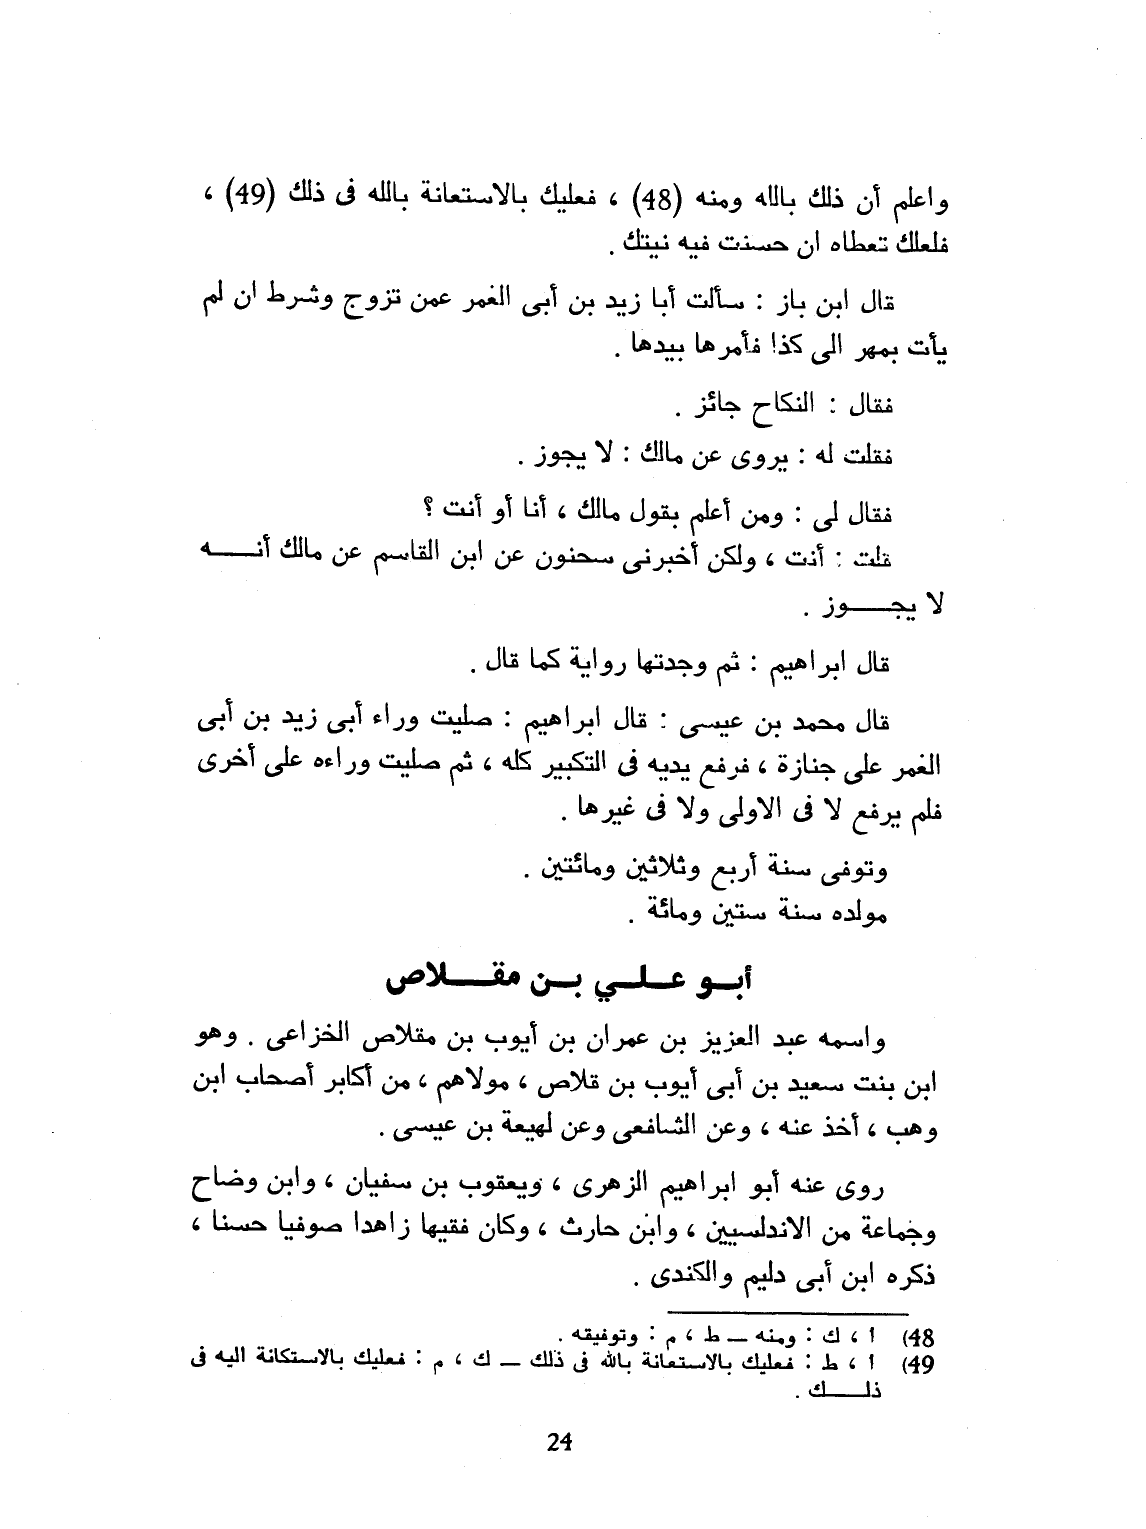 واعلم أن ذلك بالله ومنه (48) ، فعليك بالاستعانة بالله فى ذلك (49) ،
فلعلك تعطاه ان حسنت فيه نيتك .
قال ابن باز : سألت أبا زيد بن أبى الغمر عمن تزوج وشرط ان لم
يأت بمهر الى كذا فأمرها بيدها .
فقال : النكاح جائز .
فقلت له : يروى عن مالك : لا يجوز .
فقال لى : ومن أعلم بقول مالك ، أنا أو أنت ؟
قلت : أنت ، ولكن أخبرنى سحنون عن ابن القاسم عن مالك أنـــه
لا يجـــوز .
قال ابراهيم : ثم وجدتها رواية كما قال .
قال محمد بن عيسى : قال ابراهيم : صليت وراء أبى زيد بن أبى
الغمر على جنازة ، فرفع يديه فى التكبير كله ، ثم صليت وراءه على أخرى
فلم يرفع لا فى الاولى ولا فى غيرها .
وتوفى سنة أربع وثلاثين ومائتين .
مولده سنة ستين ومائة .
أبـو عـلـي بـن مقـــلاص
واسمه عبد العزيز بن عمران بن أيوب بن مقلاص الخزاعى . وهو
ابن بنت سعيد بن أبى أيوب بن قلاص ، مولاهم ، من أكابر أصحاب ابن
وهب ، أخذ عنه ، وعن الشافعى وعن لهيعة بن عيسى .
روى عنه أبو ابراهيم الزهرى ، ويعقوب بن سفيان ، وابن وضاح
وجماعة من الاندلسيين ، وابن حارث ، وكان فقيها زاهدا صوفيا حسنا ،
ذكره ابن أبى دليم والكندى .
48) ا ، ك : ومنه ــ ط ، م : وتوفيقه .
49) ا ، ط : فعليك بالاستعانة بالله فى ذلك ــ ك ، م : فعليك بالاستكانة اليه فى
ذلـــك .
24